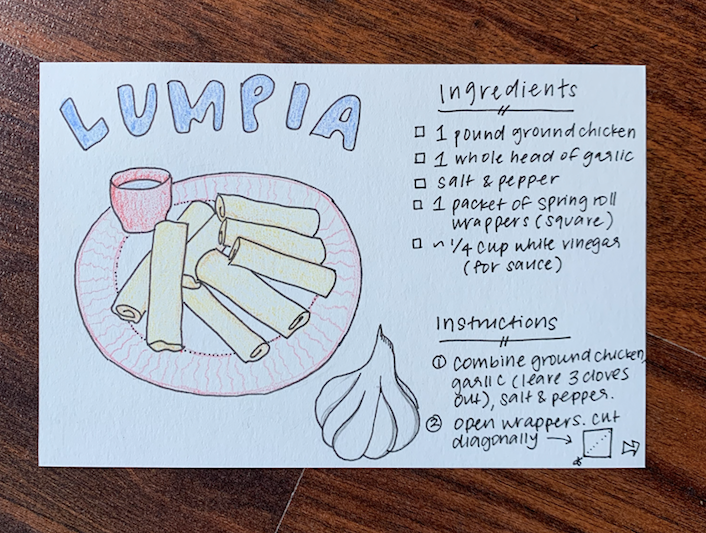 LUMPIA
Ingredients
1 pound ground chicken
1 whole head of garlic
salt & pepper
1 packet of spring roll
wrappers (square)
~ 1/4 cup white vinegar
(for sauce)
Instructions
① combine ground chicken,
garlic (leave 3 cloves
out), salt & pepper.
② open wrappers. cut
diagonally →